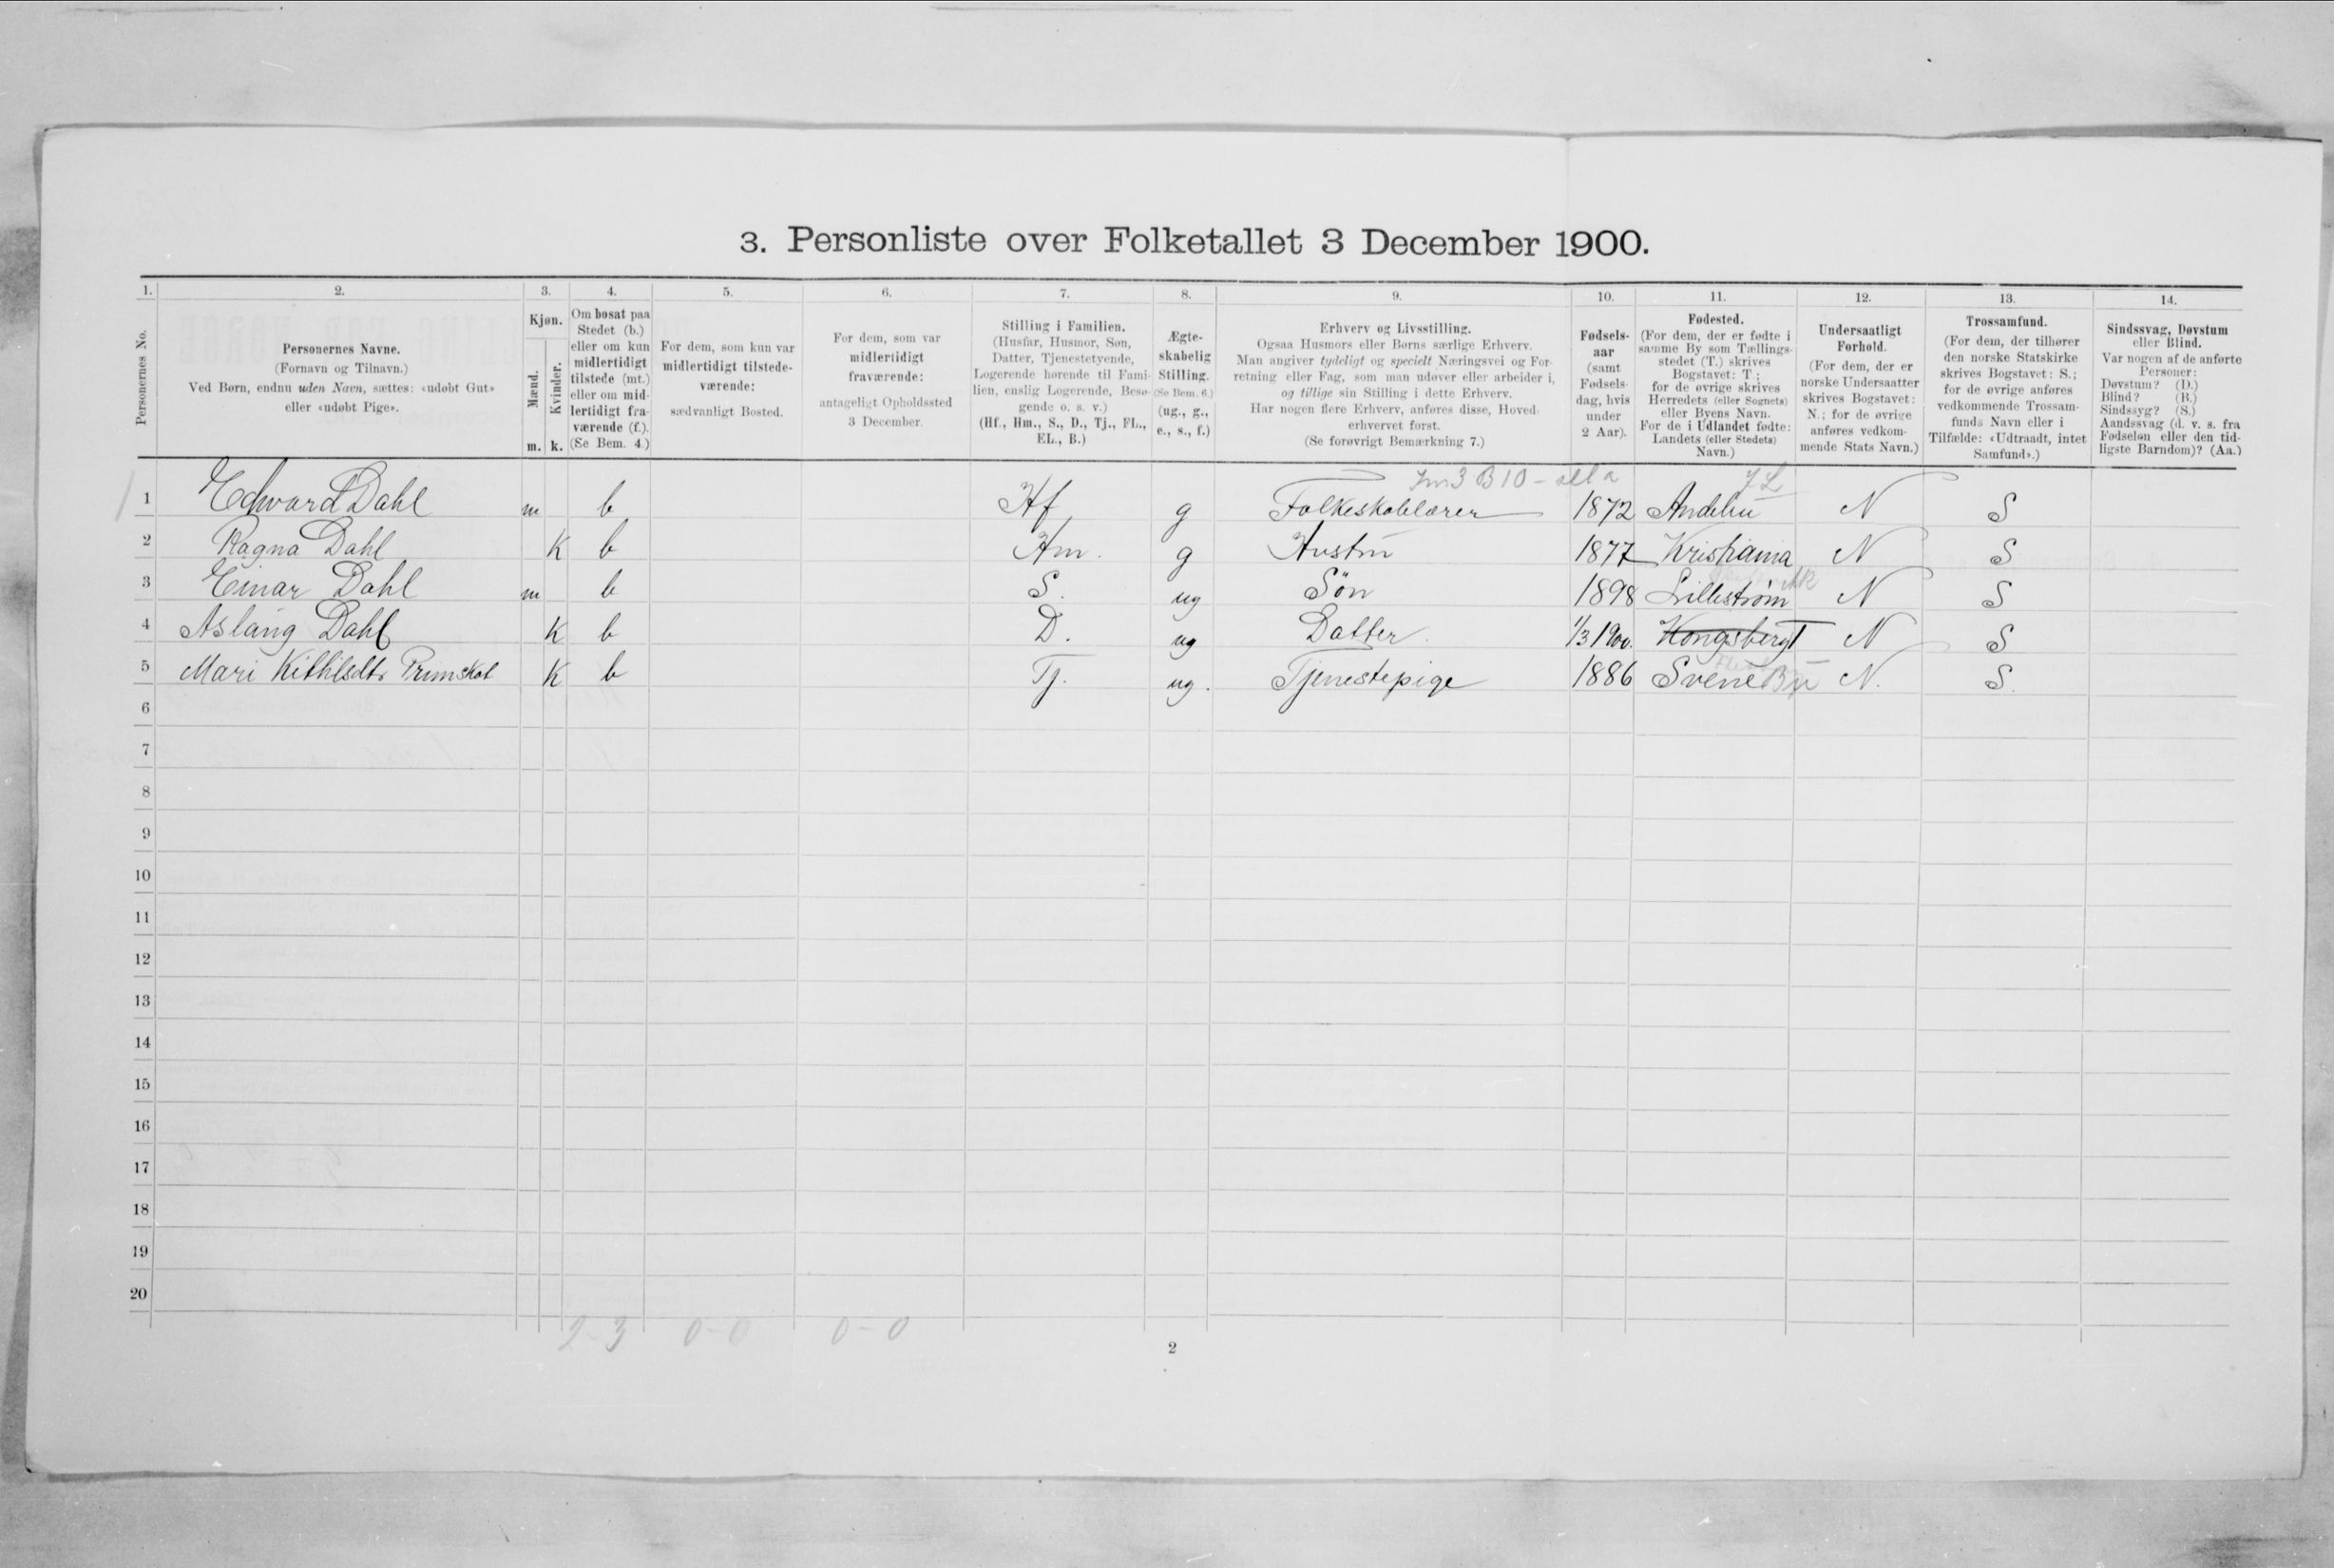 3. Personliste over Folketallet 3 December 1900.
1. 2. 3. 4. 5. 6. 7. 8. 9. 10. 11. 12. 13. 14.
Personernes No.
Personernes Navne.
(Fornavn og Tilnavn.)
Ved Børn, endnu uden Navn, sættes: «udøbt Gut»
eller «udøbt Pige».
Kjøn.
Mænd.
Kvinder.
m. k.
Om bosat paa
Stedet (b.)
eller om kun
midlertidigt
tilstede (mt.)
eller om mid-
lertidigt fra-
værende (f.).
(Se Bem. 4.)
For dem, som kun var
midlertidigt tilstede-
værende:
sædvanligt Bosted.
For dem, som var
midlertidigt
fraværende:
antageligt Opholdssted
3 December.
Stilling i Familien.
(Husfar, Husmor, Søn,
Datter, Tjenestetyende,
Logerende hørende til Fami-
lien, enslig Logerende, Besø-
gende o. s. v.)
(Hf., Hm., S., D., Tj., FL.,
EL., B.)
Ægte-
skabelig
Stilling.
(Se Bem. 6.)
(ug., g.,
e., s., f.)
Erhverv og Livsstilling.
Ogsaa Husmors eller Børns særlige Erhverv.
Man angiver tydeligt og specielt Næringsvei og For-
retning eller Fag, som man udøver eller arbeider i,
og tillige sin Stilling i dette Erhverv.
Har nogen flere Erhverv, anføres disse, Hoved-
erhvervet først.
(Se forøvrigt Bemærkning 7.)
Fødsels-
aar
(samt
Fødsels-
dag, hvis
under
2 Aar).
Fødested.
(For dem, der er fødte i
samme By som Tællings-
stedet (T.) skrives
Bogstavet: T;
for de øvrige skrives
Herredets (eller Sognets)
eller Byens Navn.
For de i Udlandet fødte:
Landets (eller Stedets)
Navn.)
Undersaatligt
Forhold.
(For dem, der er
norske Undersaatter
skrives Bogstavet:
N.; for de øvrige
anføres vedkom-
mende Stats Navn.)
Trossamfund.
(For dem, der tilhører
den norske Statskirke
skrives Bogstavet: S.;
for de øvrige anføres
vedkommende Trossam-
funds Navn eller i
Tilfælde: «Udtraadt, intet
Samfund».)
Sindssvag, Døvstum
eller Blind.
Var nogen af de anførte
Personer:
Døvstum? (D.)
Blind? (B.)
Sindssyg? (S.)
Aandssvag (d. v. s. fra
Fødselen eller den tid-
ligste Barndom)? (Aa.)
1 Edward Dahl m b Hf g Folkeskolelærer 1872 N S
2 Ragna Dahl K b Hm. g Hustru 1877 Kristiania N S
3 Einar Dahl m b S. ug Søn 1898 Lillestrøm N S
4 Aslaug Dahl K b D. ug Datter. 1/3 1900. Kongsberg T N S
5 Mari Kithilsdtr Primskot K b Tj. ug. Tjenestepige 1886 Svene Bu N. S.
6
7
8
9
10
11
12
13
14
15
16
17
18
19
20
2-3 0-0 0-0
2